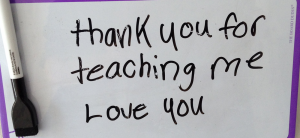 thank you for
teaching me
Love you